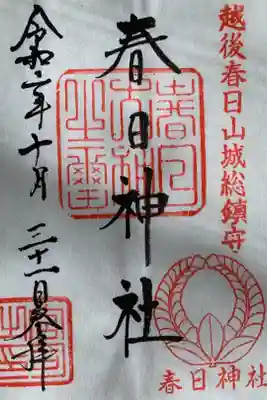 越後春日山城総鎮守
春日神社
春日神社
令和二年十月
三十一日奉拝